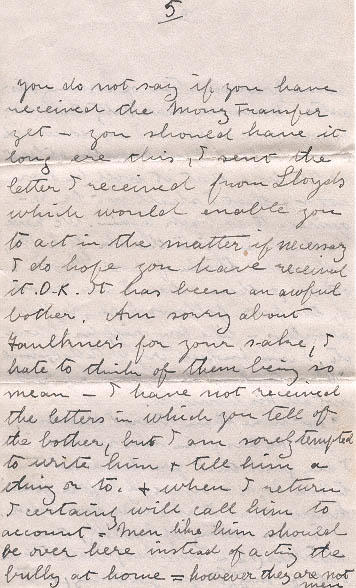 5
you do not say if you have
received the Money Transfer
yet - you should have it
long ere this, I sent the
letter I received from Lloyds
which would enable you
to act in the matter if necessary
I do hope you have received
it O.K. It has been an awful
bother. Am sorry about
Faulkner's for your sake, I
hate to think of them being so
mean - I have not received
the letters in which you tell of
the bother, but I am sorely tempted
to write him + tell him a
thing or to. + when I return
I certainly will call him to
account = Men like him should
be over here instead of acting the
bully at home = however they are not
men